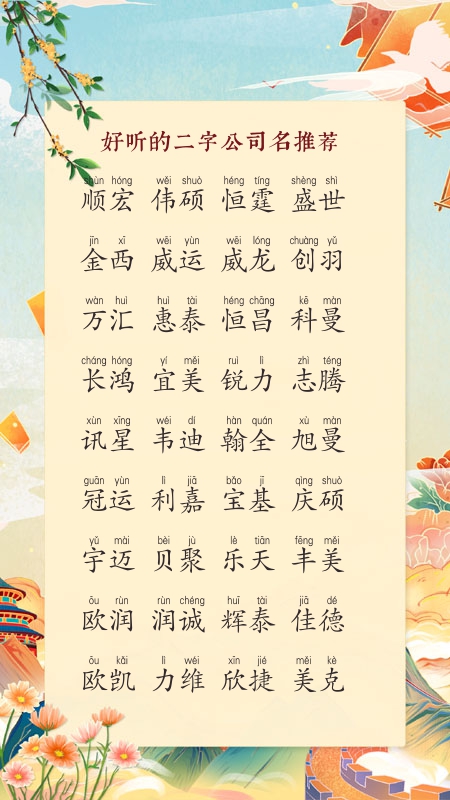 好听的二字公司名推荐
shùn hóng wěi shuò héng tíng shèng shì
顺宏 伟硕 恒霆 盛世
jīn xī wēi yùn wēi lóng chuàng yǔ
金西 威运 威龙 创羽
wàn huì huì tài héng chāng kē màn
万汇 惠泰 恒昌 科曼
cháng hóng yí měi ruì lì zhì téng
长鸿 宜美 锐力 志腾
xùn xīng wéi dí hàn quán xù màn
讯星 韦迪 翰全 旭曼
guān yùn lì jiā bǎo jī qìng shuò
冠运 利嘉 宝基 庆硕
yǔ mài bèi jù lè tiān fēng měi
宇迈 贝聚 乐天 丰美
ōu rùn rùn chéng huī tài jiā dé
欧润 润诚 辉泰 佳德
ōu kǎi lì wéi xīn jié měi kè
欧凯 力维 欣捷 美克